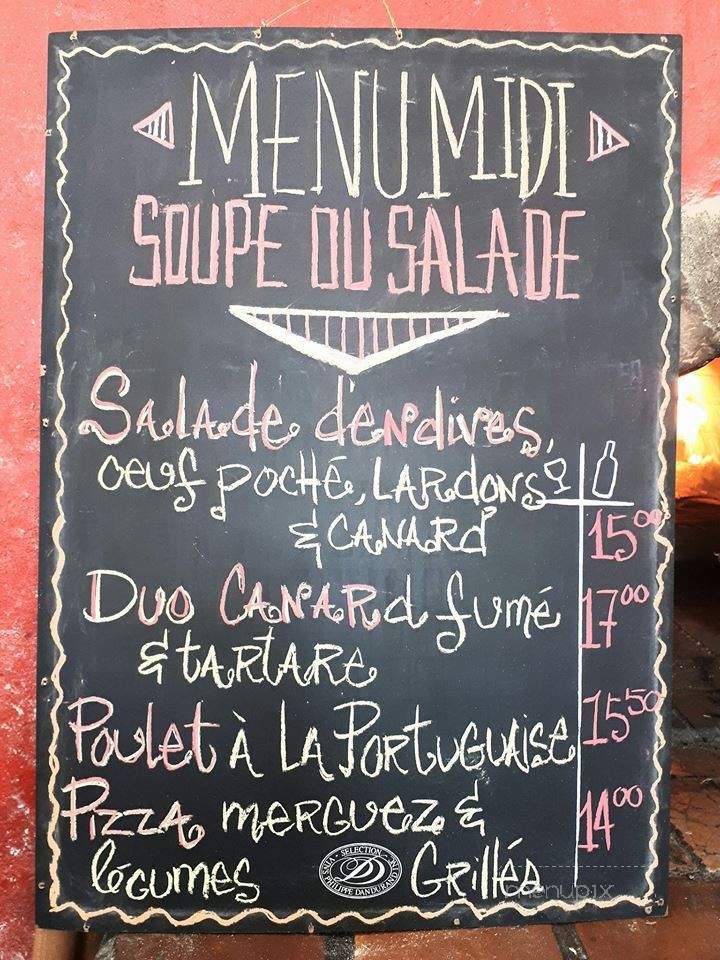 MENU MIDI
SOUPE OU SALADE
Salade d'endives,
oeuf poché, lardons
& canard 15⁰⁰
Duo canard fumé 17⁰⁰
& tartare
Poulet à la Portuguaise 15⁵⁰
Pizza merguez & 14⁰⁰
légumes Grillés
SÉLECTION
PHILIPPE DANDURAND
D
menupix